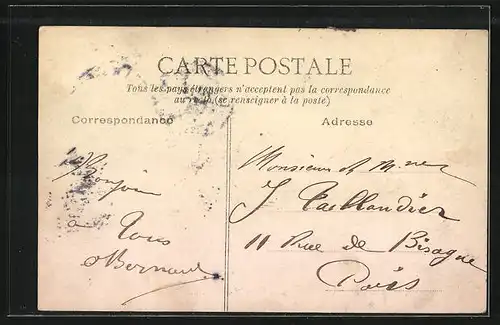 CARTE POSTALE
Tous les pays étrangers n'acceptent pas la correspondance
au (se renseigner à la poste)
Correspondance
Adresse
Bonjour
à
Tous
Bernard
Monsieur et Mme
J Taillandier
11 Rue de
Paris